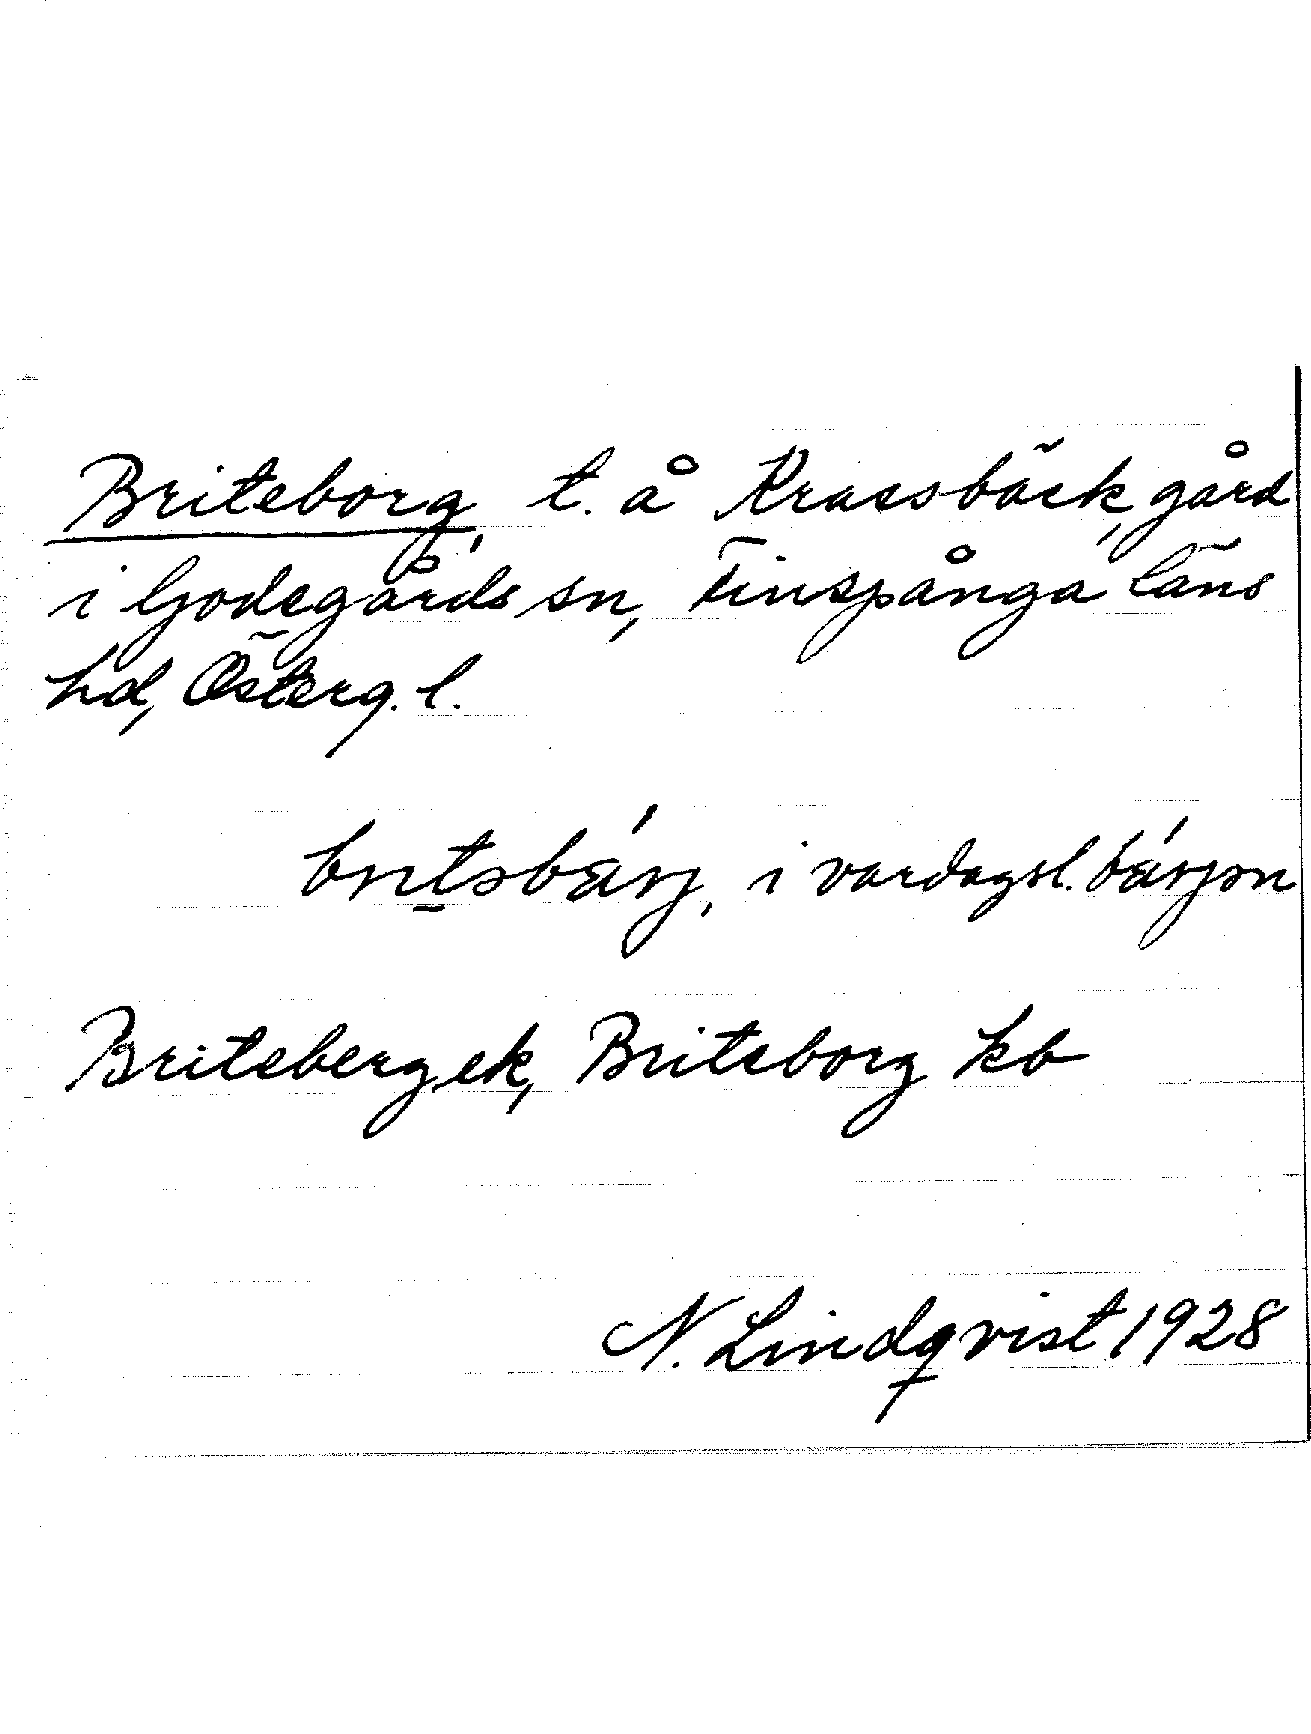 Briteborg, t. å Krassbäck, gård
i Godegårds sn, Finspånga läns
hd, Österg. l.
i vardagsl.
Briteberg ek, Briteborg kb
N. Lindqvist 1928